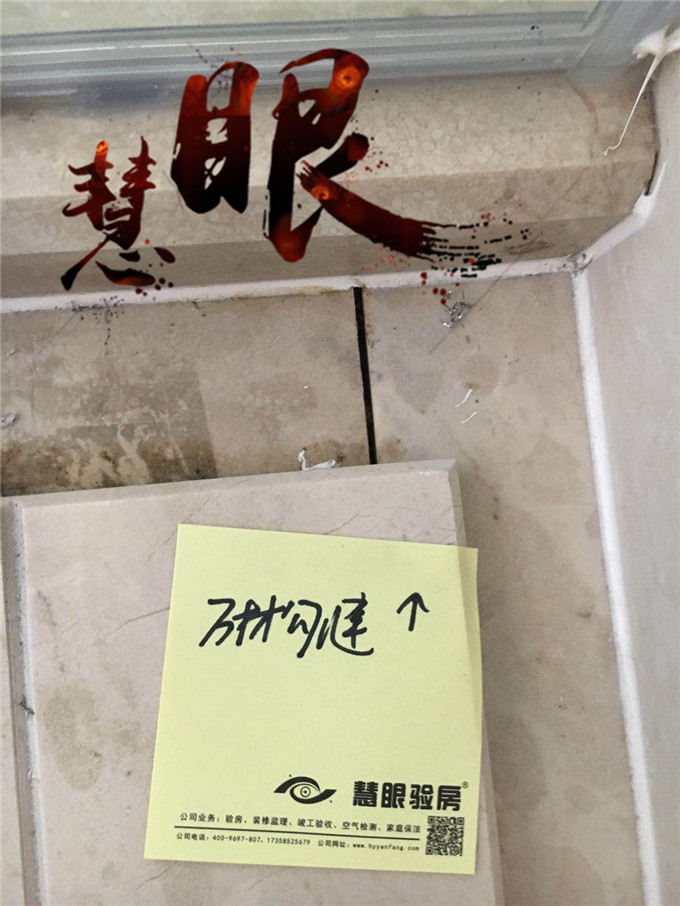 慧眼
材勾缝 ↑
慧眼验房®
公司业务：验房、装修监理、竣工验收、空气检测、家庭保洁
公司电话：400-9697-807、17358525679 公司网址：www.hyyanfang.com